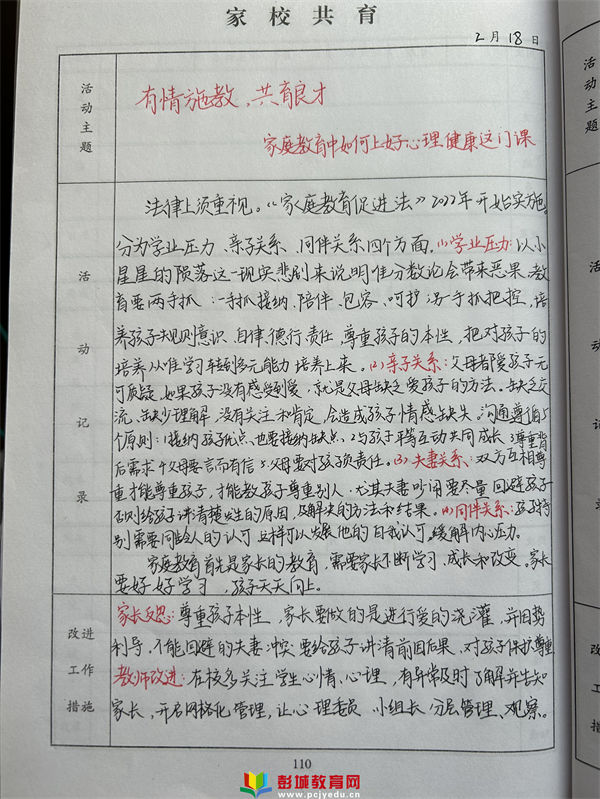 家校共育
2月18日
活动主题
有情施教，共育良才
家庭教育中如何上好心理健康这门课
活动记录
法律上须重视。《家庭教育促进法》2022年开始实施。
分为学业压力、亲子关系、同伴关系四个方面。(1)学业压力：以小
星星的陨落这一现实悲剧来说明唯分数论会带来恶果。教
育要两手抓：一手抓接纳、陪伴、包容、呵护；另一手抓把握，培
养孩子规则意识、自律、德行、责任，尊重孩子的本性，把对孩子的
培养从唯学习转到多元能力培养上来。(2)亲子关系：父母都爱孩子无
可质疑，如果孩子没有感受到爱，就是父母缺乏爱孩子的方法。缺乏交
流，缺少理解，没有关注和肯定，会造成孩子情感缺失。沟通遵循5
个原则：1接纳孩子优点，也要接纳缺点，2与孩子平等互动共同成长，3尊重背
后需求，4父母要言而有信，5父母要对孩子负责任。(3)夫妻关系：双方互相尊
重才能尊重孩子，才能教孩子尊重别人，尤其夫妻吵闹要尽量回避孩子
否则给孩子讲清楚发生的原因，及解决的方法和结果。(4)同伴关系：孩子特
别需要同龄人的认可，这样可以发展他的自我认可，缓解内心压力。
家庭教育首先是家长的教育，需要家长不断学习、成长和改变。家长
要好好学习，孩子天天向上。
改进工作措施
家长反思：尊重孩子本性，家长要做的是进行爱的浇灌，并因势
利导，不能回避的夫妻冲突要给孩子讲清前因后果，对孩子保护尊重
教师改进：在校多关注学生心情、心理，有异常及时了解并告知
家长，开启网格化管理，让心理委员、小组长分层管理、观察。
110
活动主题
活动记录
改
工
措
彭城教育网
www.pcjyedu.cn